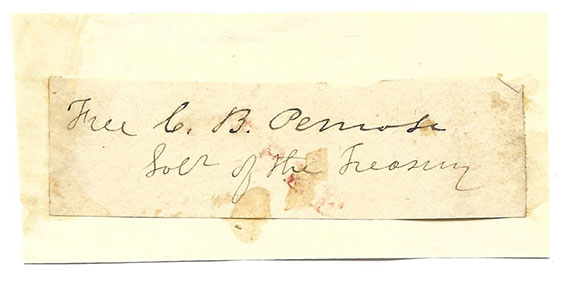 Free C. B. Penrose
Solr of the Treasury